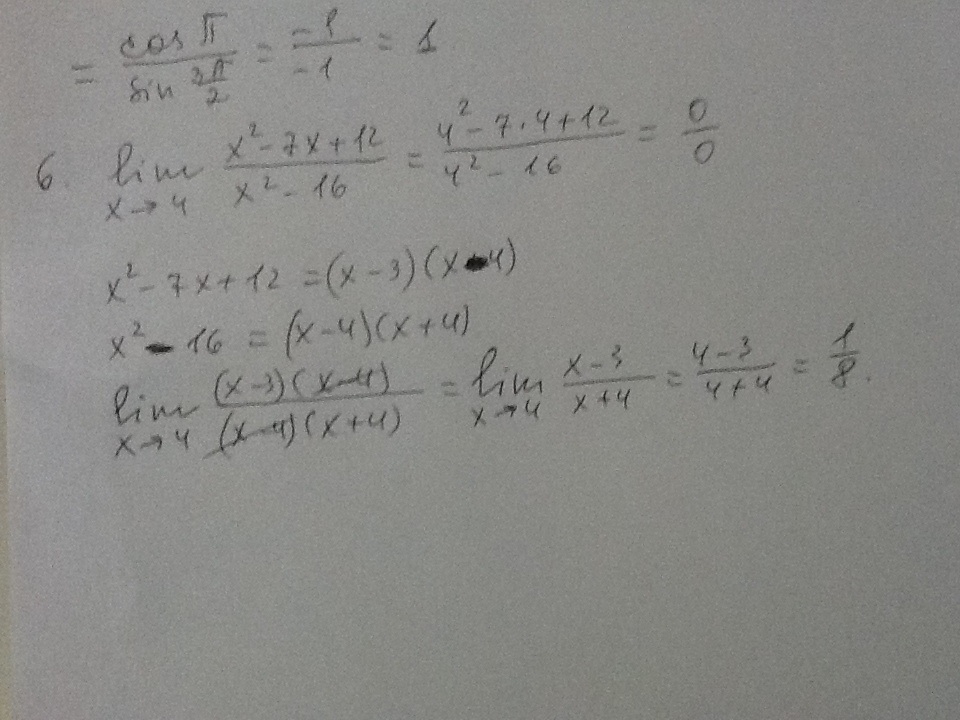 = cos π / sin 3π/2 = -1 / -1 = 1
6. lim x→4 x² - 7x + 12 / x² - 16 = 4² - 7·4 + 12 / 4² - 16 = 0/0
x² - 7x + 12 = (x - 3)(x - 4)
x² - 16 = (x - 4)(x + 4)
lim x→4 (x - 3)(x - 4) / (x - 4)(x + 4) = lim x→4 x - 3 / x + 4 = 4 - 3 / 4 + 4 = 1/8.